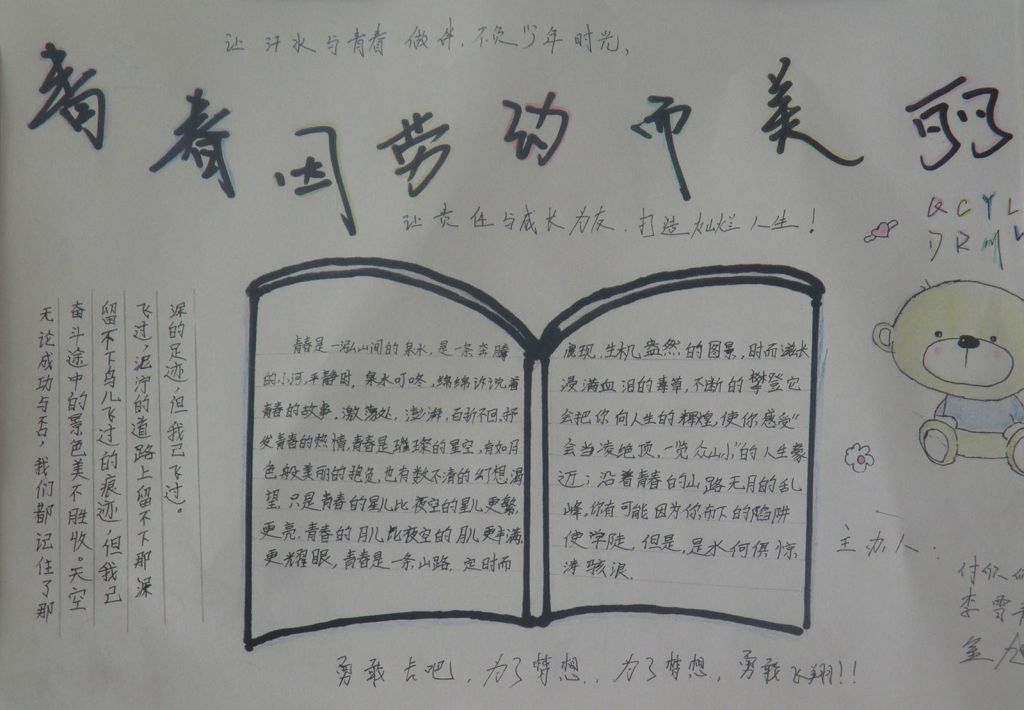 让汗水与青春做伴.不负少年时光,
青春因劳动而美丽
让责任与成长为友.打造灿烂人生!
QCYL
DRM
无论成功与否,我们都记住了那
奋斗途中的景色美不胜收。天空
留不下鸟儿飞过的痕迹,但我已
飞过;泥泞的道路上留不下那深
深的足迹,但我已飞过。
青春是一泓山间的泉水,是一条奔腾
的小河,平静时,泉水叮咚,绵绵诉说着
青春的故事.激荡处,澎湃,百折不回,抒
发青春的热情,青春是璀璨的星空,有如月
色般美丽的抱负,也有数不清的幻想渴
望,只是青春的星儿比夜空的星儿更繁,
更亮,青春的月儿比夜空的月儿更丰满,
更耀眼,青春是一条山路,它时而
展现,生机盎然的图景,时而滋长
浸满血泪的毒草,不断的攀登它
会把你向人生的辉煌,使你感受"
会当凌绝顶,一览众山小"的人生豪
近;沿着青春的山路无月的乱
峰,你有可能因为你而下的陷阱
使学陡,但是,是水何俱惊
涛骇浪.
主办人:
李雪
金旭
勇敢去吧,为了梦想..为了梦想,勇敢飞翔!!